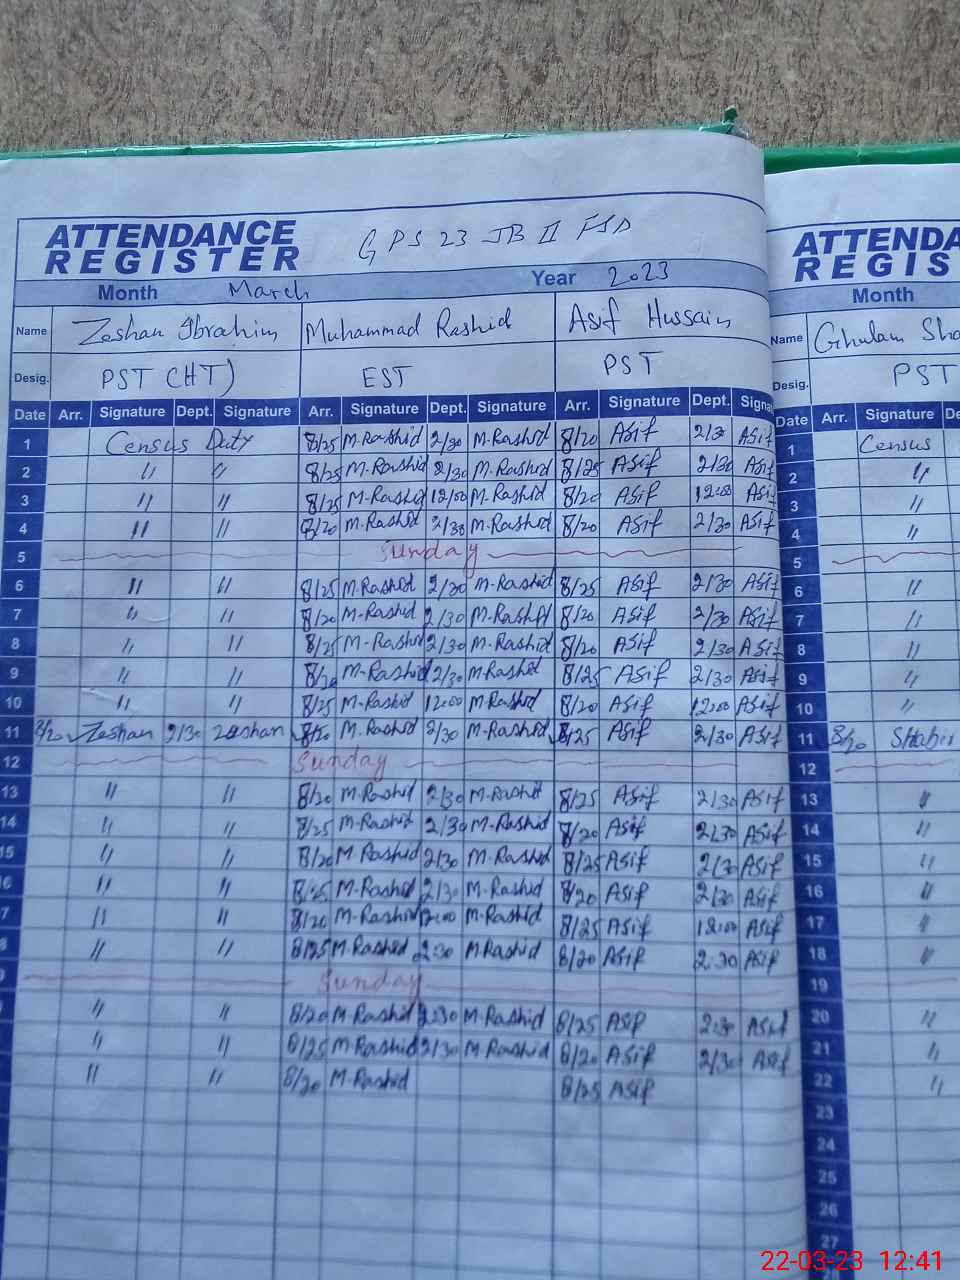 ATTENDANCE REGISTER GPS 23 JB II FSD
Month March Year 2023
Name Zeshan Ibrahim Muhammad Rashid Asif Hussain
Desig. PST (HT) EST PST
Date Arr. Signature Dept. Signature Arr. Signature Dept. Signature Arr. Signature Dept. Signa
1 Census Duty 8/25 M-Rashid 2/30 M-Rashid 8/20 Asif 2/30 Asif
2 " " 8/25 M-Rashid 2/30 M-Rashid 8/25 Asif 2/30 Asif
3 " " 8/25 M-Rashid 12/00 M-Rashid 8/20 Asif 12:00 Asif
4 " " 8/20 M-Rashid 2/30 M-Rashid 8/20 Asif 2/30 Asif
5 Sunday
6 " " 8/25 M-Rashid 2/30 M-Rashid 8/25 Asif 2/30 Asif
7 " " 8/20 M-Rashid 2/30 M-Rashid 8/20 Asif 2/30 Asif
8 " " 8/25 M-Rashid 2/30 M-Rashid 8/20 Asif 2/30 Asif
9 " " 8/20 M-Rashid 2/30 M-Rashid 8/25 Asif 2/30 Asif
10 " " 8/25 M-Rashid 12:00 M-Rashid 8/20 Asif 12:00 Asif
11 8/20 Zeshan 2/30 Zeshan 8/20 M-Rashid 2/30 M-Rashid 8/25 Asif 2/30 Asif
12 Sunday
13 " " 8/20 M-Rashid 2/30 M-Rashid 8/25 Asif 2/30 Asif
14 " " 8/25 M-Rashid 2/30 M-Rashid 8/20 Asif 2/30 Asif
15 " " 8/20 M-Rashid 2/30 M-Rashid 8/25 Asif 2/30 Asif
6 " " 8/25 M-Rashid 2/30 M-Rashid 8/20 Asif 2/30 Asif
7 " " 8/20 M-Rashid 12:00 M-Rashid 8/25 Asif 12:00 Asif
8 " " 8/25 M-Rashid 2:30 M-Rashid 8/20 Asif 2:30 Asif
Sunday
" " 8/20 M-Rashid 2:30 M-Rashid 8/25 Asif 2:30 Asif
" " 8/25 M-Rashid 2/30 M-Rashid 8/20 Asif 2/30 Asif
" " 8/20 M-Rashid 8/25 Asif
ATTENDA
REGIS
Month
Name Ghulam Sha
Desig. PST
Date Arr. Signature De
1 Census
2 "
3 "
4 "
5
6 "
7 "
8 "
9 "
10 "
11 8/20 Shabir
12
13 "
14 "
15 "
16 "
17 "
18 "
19
20 "
21 "
22 "
23
24
25
26
27
22-03-23 12:41